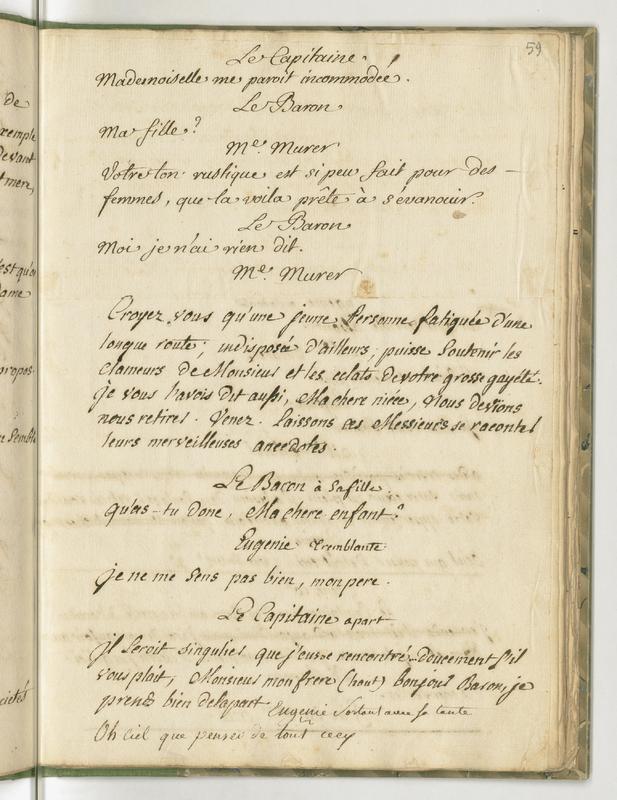 59
Le Capitaine.
Mademoiselle me paroit incommodée.
Le Baron
Ma fille?
Me. Murer
Votre ton rustique est si peu fait pour des –
femmes, que la voila prête à s'évanouir.
Le Baron
Moi je n'ai rien dit.
Me. Murer
Croyez vous qu'une jeune Personne fatiguée d'une
longue route; indisposée d'ailleurs, puisse Soutenir les
Clameurs de Monsieur et les eclats de votre grosse gayeté.
je vous l'avois dit aussi, Ma chere niéce, Nous devions
nous retirer. Venez. laissons ces Messieurs se raconter
leurs merveilleuses anecdotes.
Le Baron à Sa fille
qu'as-tu donc, Ma chere enfant?
Eugenie tremblante
je ne me Sens pas bien, mon pere.
Le Capitaine apart
Il Seroit singulier que j'eusse rencontré.. Doucement S'il
vous plait, Monsieur mon frere (haut) bonjour Baron, je
prends bien de la part
Eugenie Sortant avec sa tante
Oh ciel que penser de tout cecy
de
exemple
devant
t mere,
est qu'on
dame
propos
Semble